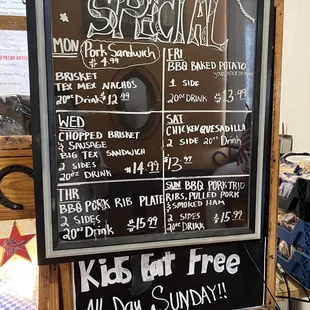 SPECIAL
MON
Pork Sandwich
$4.99
BRISKET
TEX MEX NACHOS
20oz Drink $12.99
FRI
BBQ BAKED POTATO
1 SIDE
20oz DRINK $13.99
WED
CHOPPED BRISKET
& SAUSAGE
BIG TEX SANDWICH
2 SIDES
20oz DRINK $14.99
SAT
CHICKEN QUESADILLA
2 SIDE 20oz DRINK
$13.99
THR
BBQ PORK RIB PLATE
2 SIDES
20oz DRINK $15.99
SUN BBQ PORK TRIO
RIBS, PULLED PORK
& SMOKED HAM
2 SIDES
20oz DRINK $15.99
Kids Eat Free
All Day SUNDAY!!